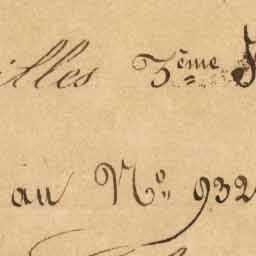 illes 3ème
au No 932